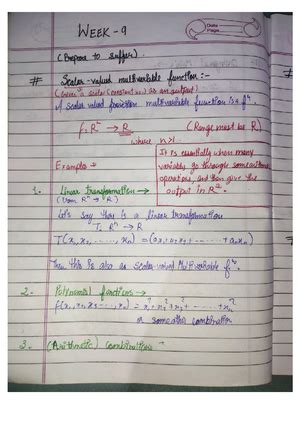 WEEK-9
Date
Page
(Prepare to suffer).
# Scalar-valued multivariable function:-
(Gives a scalar (constant no) as an output)
A scalar valued function multivariable function is a fⁿ.
f: Rⁿ → R (Range must be R)
where n>1
Examples →
It is essentially where many
variable go through some arithmetic
operations, and then give the
output in R
1. Linear transformation →
(from Rⁿ → R)
Let's say there is a linear transformation
T: Rⁿ → R
T(x₁, x₂, ..., xₙ) = (a₁x₁ + a₂x₂ + ------ + aₙxₙ)
Then this is also a scalar-valued Multivariable fⁿ.
2. Polynomial functions →
f(x₁, x₂, x₃ ---, xₙ) = x₁² + x₂² + x₃² + ------ + xₙ²
or some other combination
3. (Arithmetic) Combination